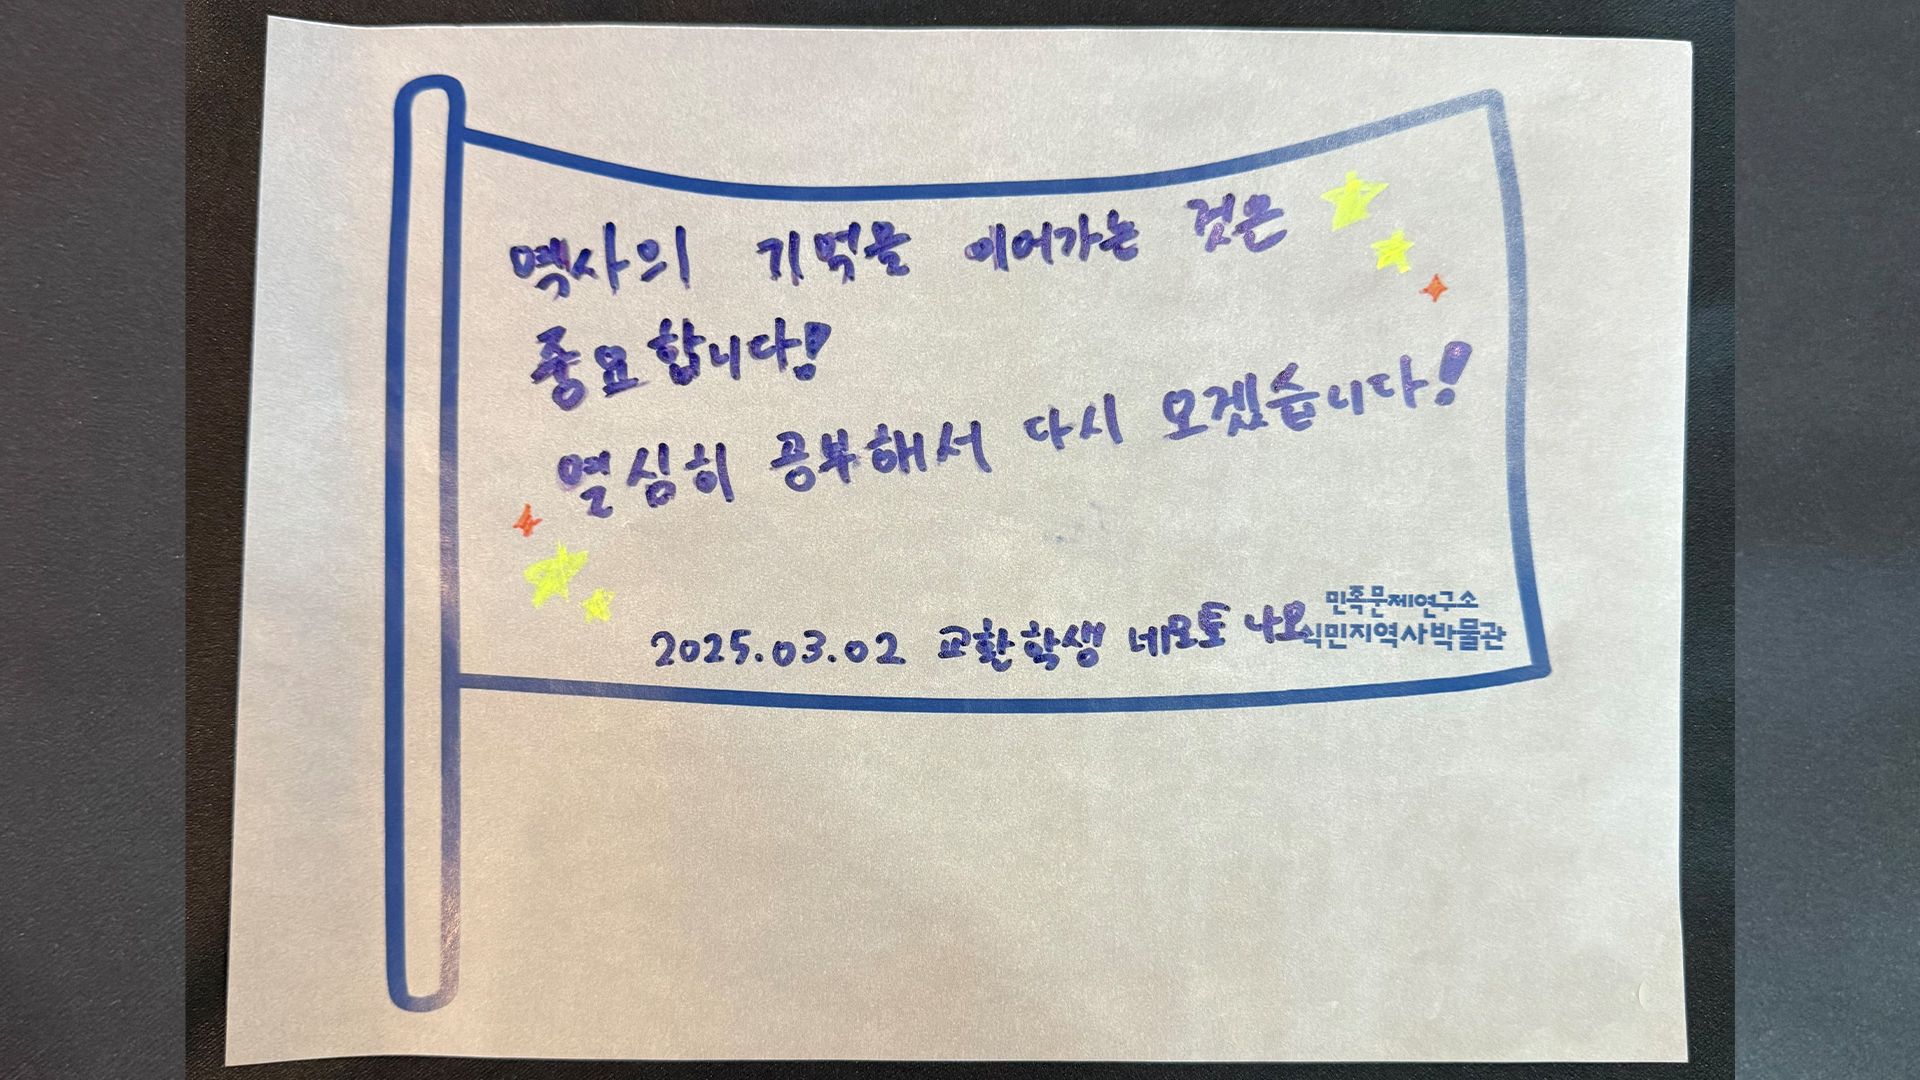 역사의 기억을 이어가는 것은
중요합니다!
열심히 공부해서 다시 오겠습니다!
2025.03.02 교환학생 네모토 나오
민족문제연구소
식민지역사박물관